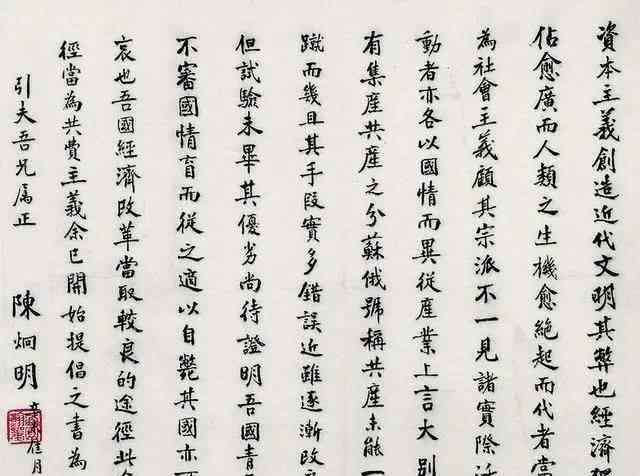 資本主義創造近代文明其弊也經濟
佔愈廣而人類之生機愈絕起而代者當
為社會主義顧其宗派不一見諸實際活
動者亦各以國情而異從產業上言大別
有集產共產之分蘇俄號稱共產未能一
蹴而幾且其手段實多錯誤近雖逐漸改
但試驗未畢其優劣尚待證明吾國青
不審國情盲而從之適以自斃其國亦
哀也吾國經濟改革當取較良的途徑此
徑當為共費主義余已開始提倡之書為
引夫吾兄屬正
陳炯明